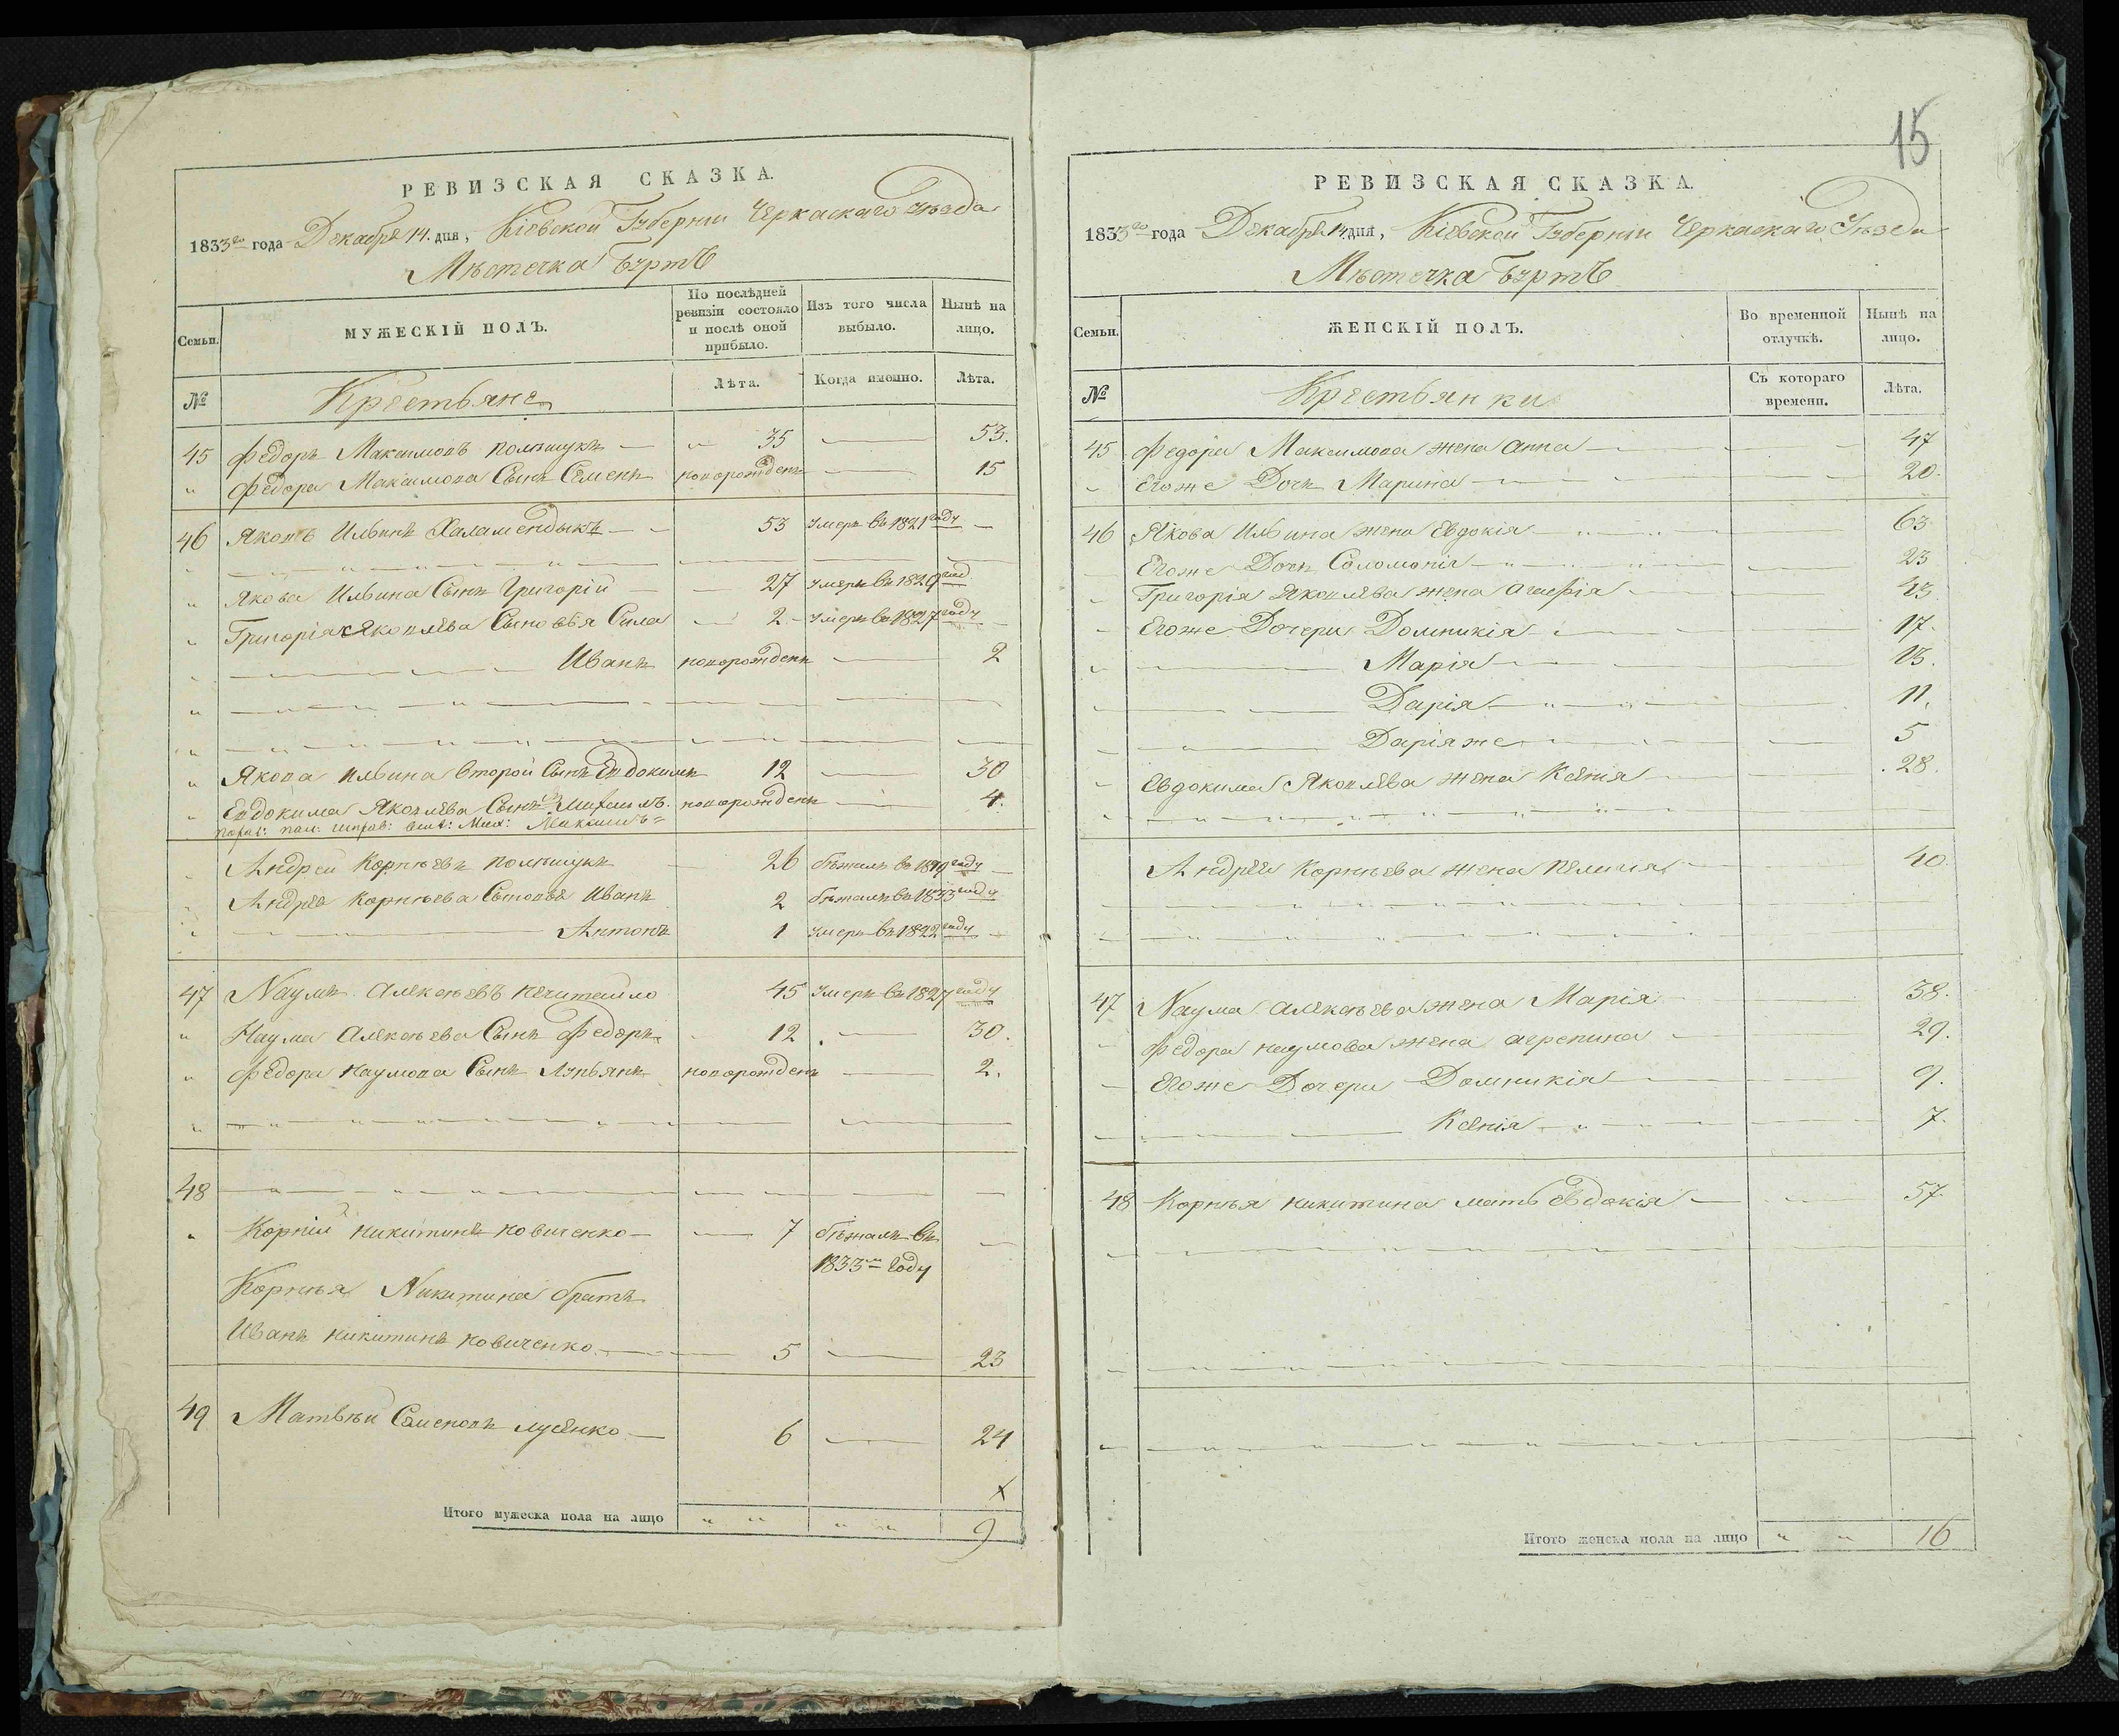 РЕВИЗСКАЯ СКАЗКА.
1833го года Декабря 14. дня, Кіевской Губерніи Черкаскаго Уѣзда
Мѣстечка Буртъ
Семьи. МУЖЕСКІЙ ПОЛЪ. По послѣдней ревизіи состояло и послѣ оной прибыло. Изъ того числа выбыло. Нынѣ на лицо.
№ Крестьяне Лѣта. Когда именно. Лѣта.
45 Федоръ Максимовъ Полѣщукъ 35 53.
Федора Максимова Сынъ Семенъ новорожденъ 15
46 Яковъ Ильинъ Халамендыкъ 53 Умеръ въ 1821 году
Якова Ильина Сынъ Григорій 27 Умеръ въ 1829 году
Григорія Яковлева Сыновья Сила 2 Умеръ въ 1827 году
Иванъ новорожденъ 2
Якова Ильина Второй Сынъ Евдокимъ 12 30
Евдокима Яковлева Сынъ Михаилъ. новорожденъ 4.
Максимъ
Андрей Корнѣевъ Полѣщукъ 26 бѣжалъ въ 1819 году
Андрея Корнѣева Сыновья Иванъ 2 бѣжалъ въ 1833 году
Антонъ 1 Умеръ въ 1822 году
47 Наумъ Алексѣевъ Нечитайло 45 Умеръ въ 1827 году
Наума Алексѣева Сынъ Федоръ 12 30.
Федора Наумова Сынъ Лукьянъ новорожденъ 2.
48
Корній Никитинъ Новиченко 7 бѣжалъ въ
1833м году
Корнѣя Никитина братъ
Иванъ Никитинъ Новиченко 5 23
49 Матвѣй Семеновъ Лусенко 6 24
х
Итого мужеска пола на лицо " " " " 9
15
РЕВИЗСКАЯ СКАЗКА.
1833го года Декабря 14 дня, Кіевской Губерніи Черкаскаго Уѣзда
Мѣстечка Буртъ
Семьи. ЖЕНСКІЙ ПОЛЪ. Во временной отлучкѣ. Нынѣ на лицо.
№ Крестьянки Съ котораго времени. Лѣта.
45 Федора Максимова жена Анна 47
Егоже Дочь Марина 20.
46 Якова Ильина жена Евдокія 63.
Егоже Дочь Соломонія 23
Григорія Яковлева жена Агафія 43
Егоже Дочери Домникія 17.
Марія 13.
Дарія 11.
Дарія же 5
Евдокима Яковлева жена Ксенія 28.
Андрея Корнѣева жена Пелагія 40.
47 Наума Алексѣева жена Марія 58.
Федора Наумова жена Агрепина 29.
Егоже Дочери Домникія 9.
Ксенія 7.
48 Корнѣя Никитина мать Евдокія 57.
Итого женска пола на лицо " " 16